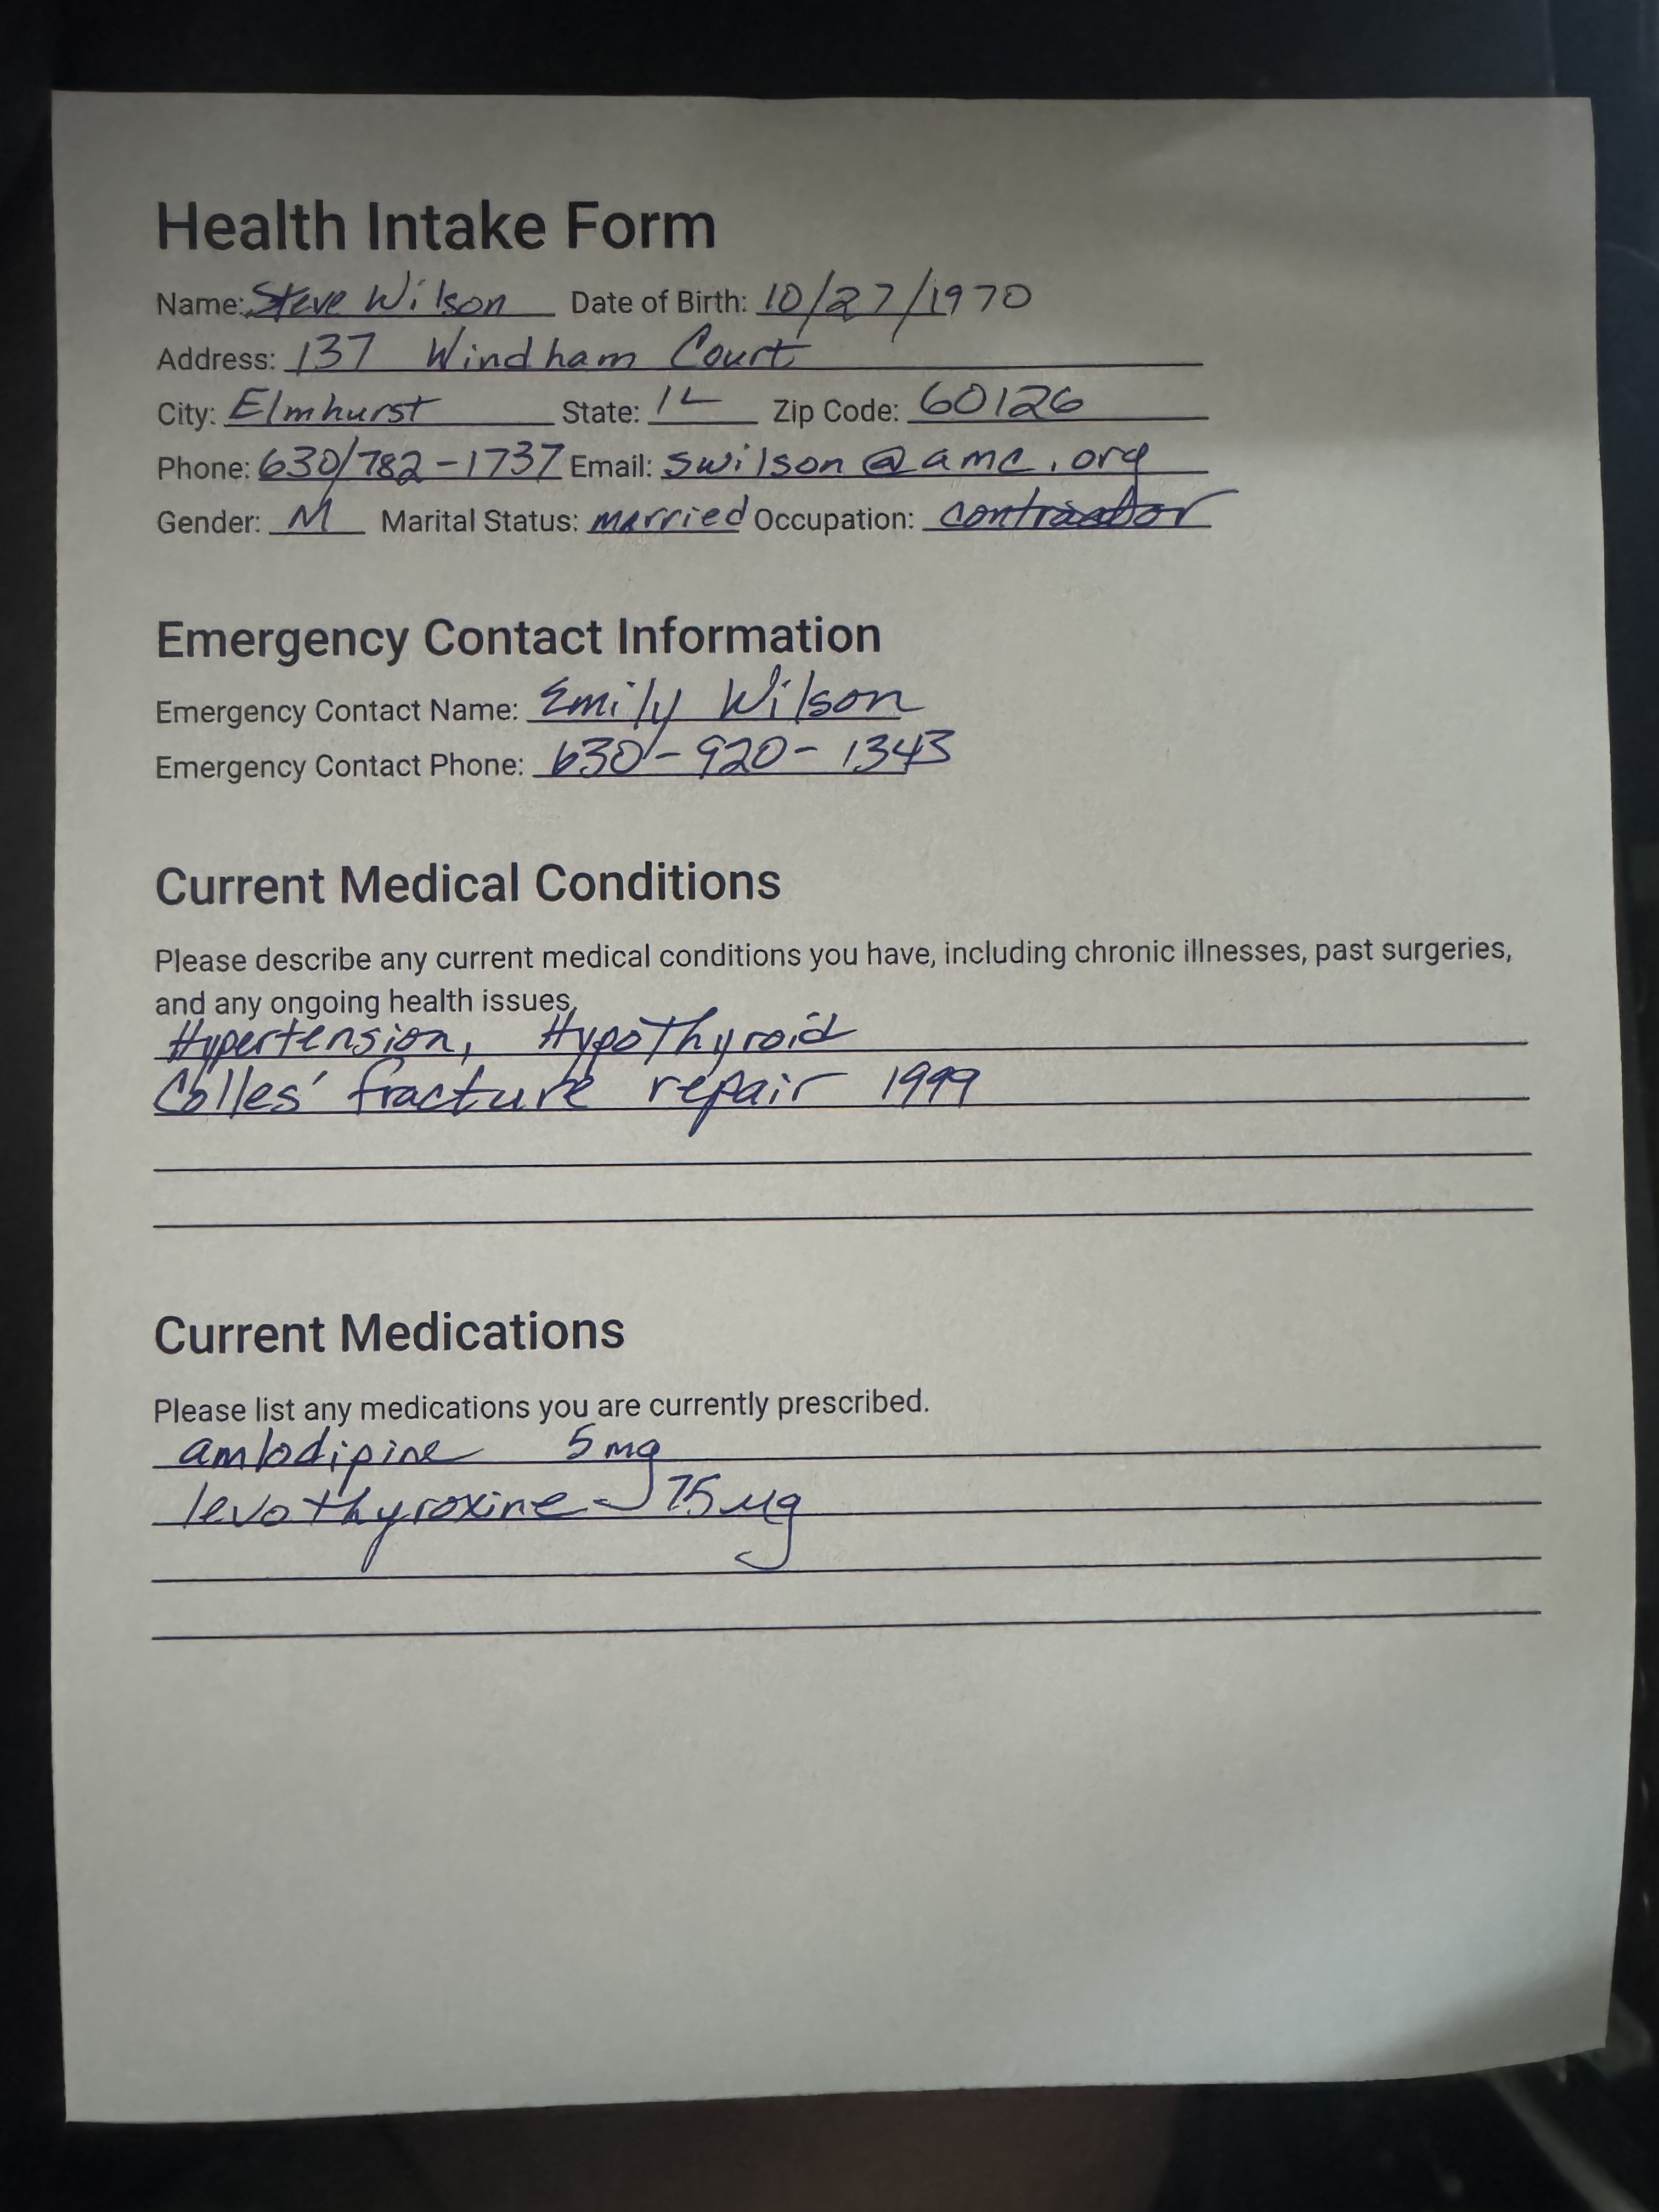 Health Intake Form
Name: Steve Wilson Date of Birth: 10/27/1970
Address: 137 Windham Court
City: Elmhurst State: IL Zip Code: 60126
Phone: 630/782-1737 Email: swilson@amc.org
Gender: M Marital Status: married Occupation: contractor
Emergency Contact Information
Emergency Contact Name: Emily Wilson
Emergency Contact Phone: 630-920-1343
Current Medical Conditions
Please describe any current medical conditions you have, including chronic illnesses, past surgeries,
and any ongoing health issues.
Hypertension, Hypothyroid
Colles' fracture repair 1999
Current Medications
Please list any medications you are currently prescribed.
amlodipine 5mg
levothyroxine - 75 µg